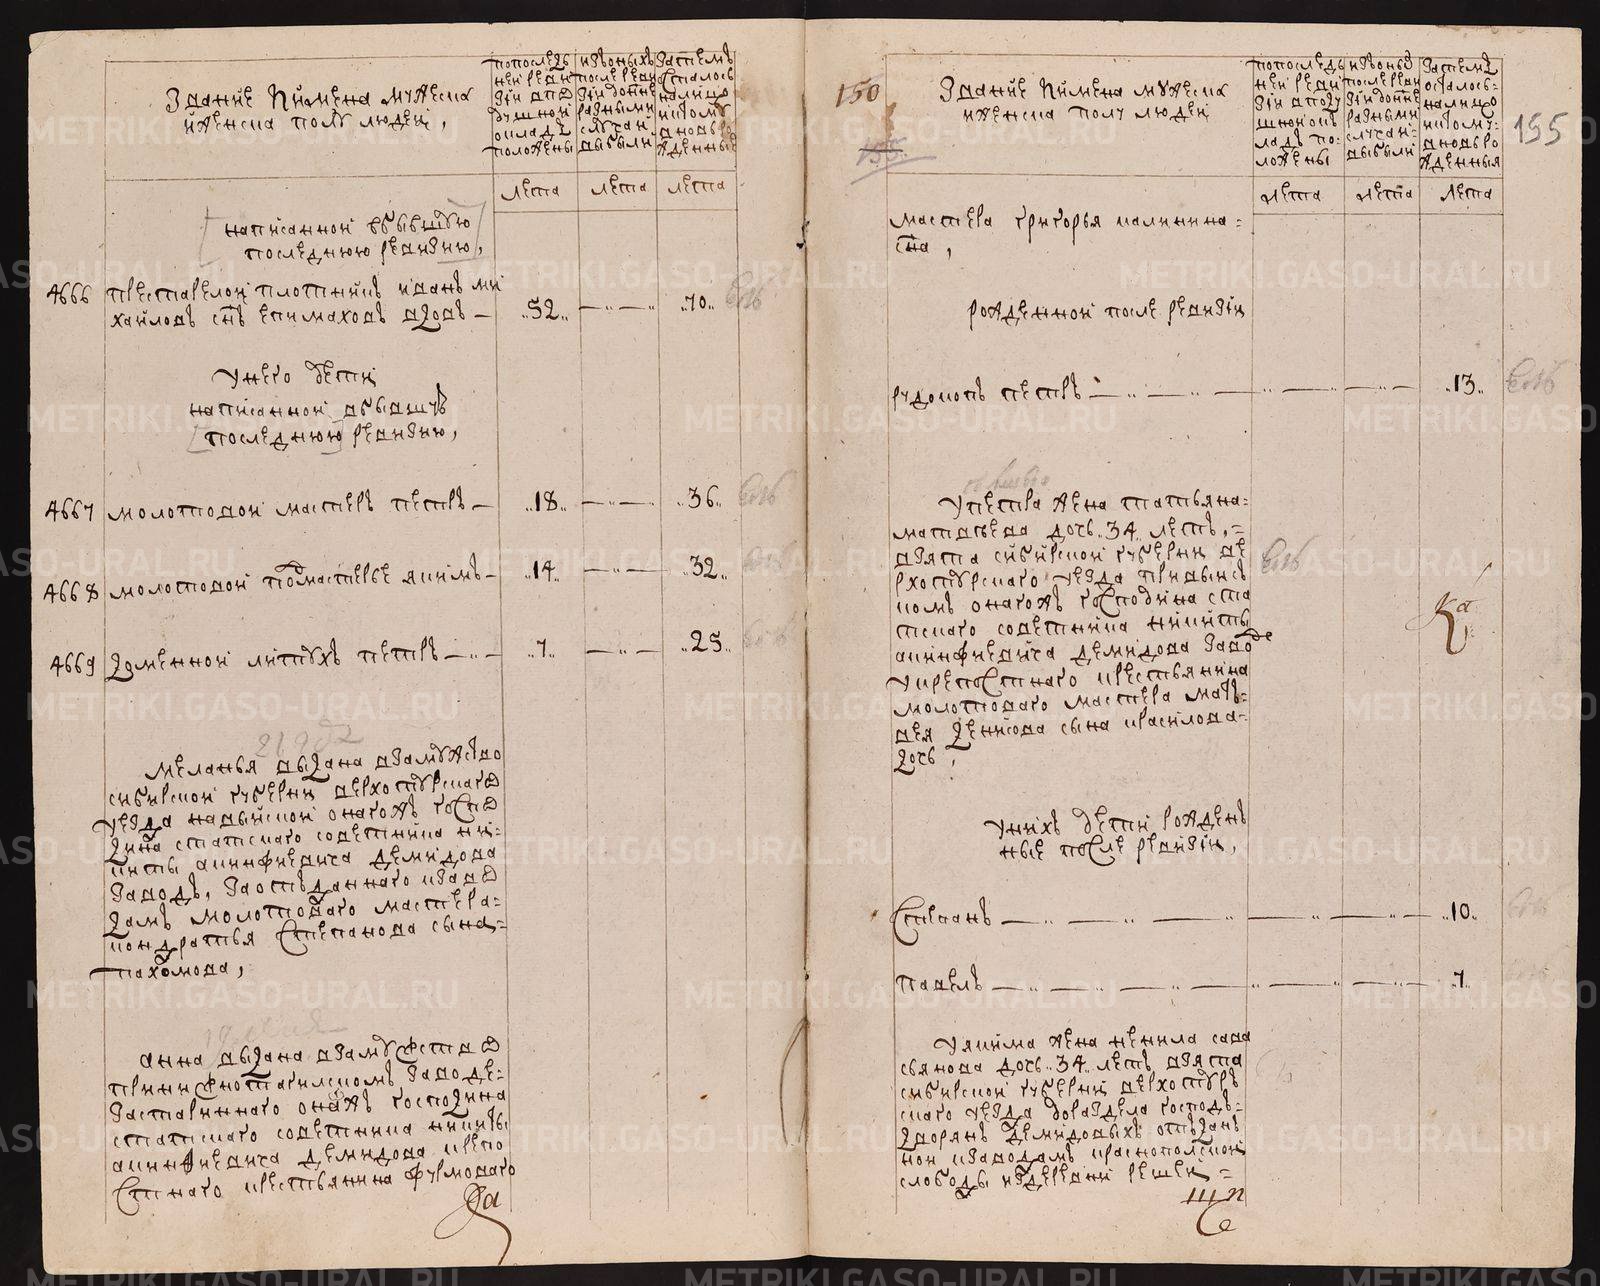 Звание и имена мужеска
и женска полу людей,
по последь
ней реви
зии в по
душной
оклад
положены
из оных
после реви
зии до ныне
разными
случаи
выбыли
затем
осталось
на лицо
и к тому
вновь ро
жденныя
лета
лета
лета
написанной в бывшую
последнюю ревизию,
4666 престарелой плотник иван ми
хайлов снъ епимахов вдов — „52„ — „ — „70„
У него дети
написанной в бывшую
последнюю ревизию,
4667 молотовой мастеръ петръ — „18„ — „ — „36„
4668 молотовой подмастерье якимъ — „14„ — „ — „32„
4669 доменной литухъ петръ — „ — „7„ — „ — „25„
меланья выдана в замужство
сибирской губернии верхотурскаго
уезда на выйской онагожъ госпо
дина статскаго советника ни=
киты акинфиевича демидова
заводъ, за отъданнаго к заво
дамъ молотоваго мастера=
кондратья степанова сына=
пахомова,
анна выдана в замужство
при нижнотагилскомъ заводе=
за старинного онажъ господина
статскаго советника никиты
акинфиевича демидова крепо
стнаго крестьянина фурмоваго
150
155
195
Звание и имена мужеска
и женска полу людей
по последь
ней реви
зии в поду
шной ок
ладъ по=
ложены
из оных
после реви
зии до ныне
разными
случаи=
выбыли
затем
осталось=
на лицо
и к тому=
вновь ро
жденныя
лета
лета
лета
мастера григорья калинина=
сна,
рожденной после ревизии
рудокопъ петръ — „ — „ — „ — „ — „13„
У петра жена татьяна=
матвеева дочь „34„ летъ,=
взята сибирской губернии ве
рхотурскаго уезда при выйс
комъ онагожъ господина ста
тскаго советника никиты
акинфиевича демидова заводе
у крепостнаго крестьянина
молотоваго мастера мать=
вея денисова сына красилова=
дочь,
Ка
У нихъ дети рожден
ные после ревизии,
Степанъ — „ — „ — „ — „ — „10„
павелъ — „ — „ — „ — „ — „7„
У якима жена ненила сава
сьянова дочь „34„ летъ взята
сибирской губернии верхотуръ
скаго уезда до раздела господъ=
дворянъ демидовыхъ отъдан
ной к заводамъ краснополской
слободы из деревни решей=